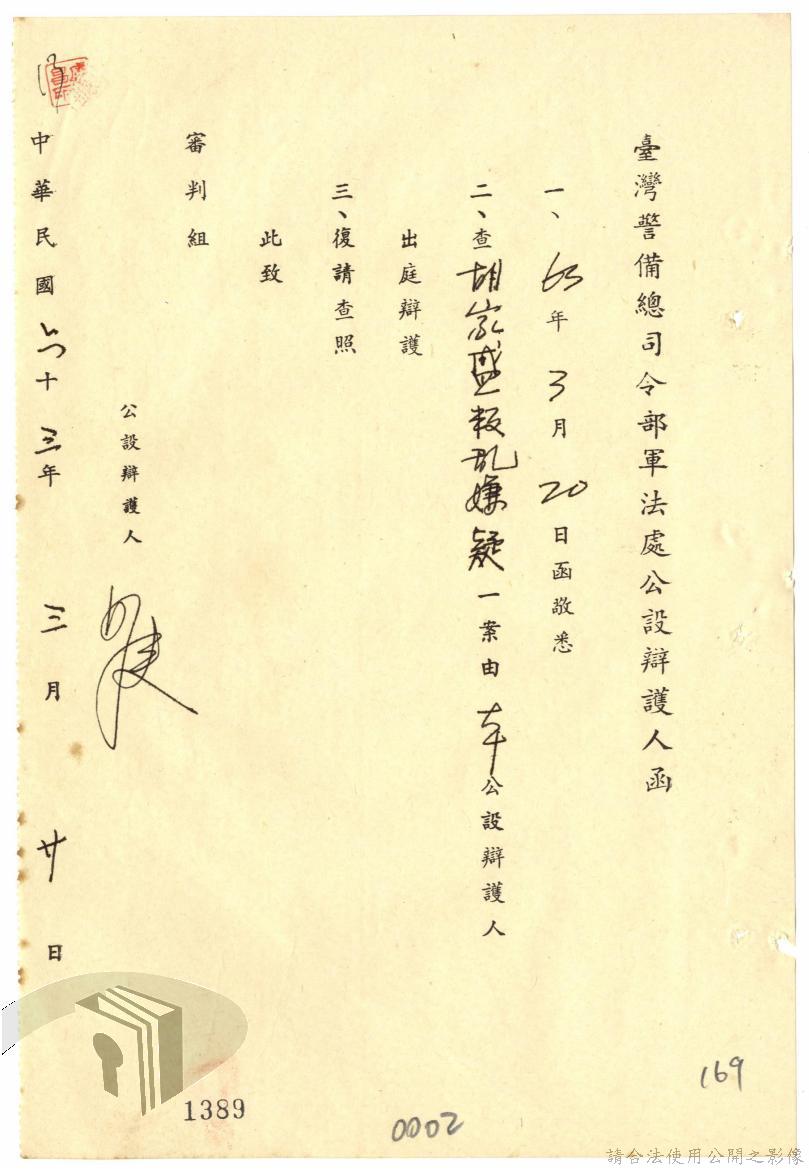 臺灣警備總司令部軍法處公設辯護人函
一、63年3月20日函敬悉
二、查胡家盛叛乱嫌疑一案由本公設辯護人
出庭辯護
三、復請查照
此致
審判組
公設辯護人
中華民國六十三年三月廿日
169
1389
0002
請合法使用公開之影像